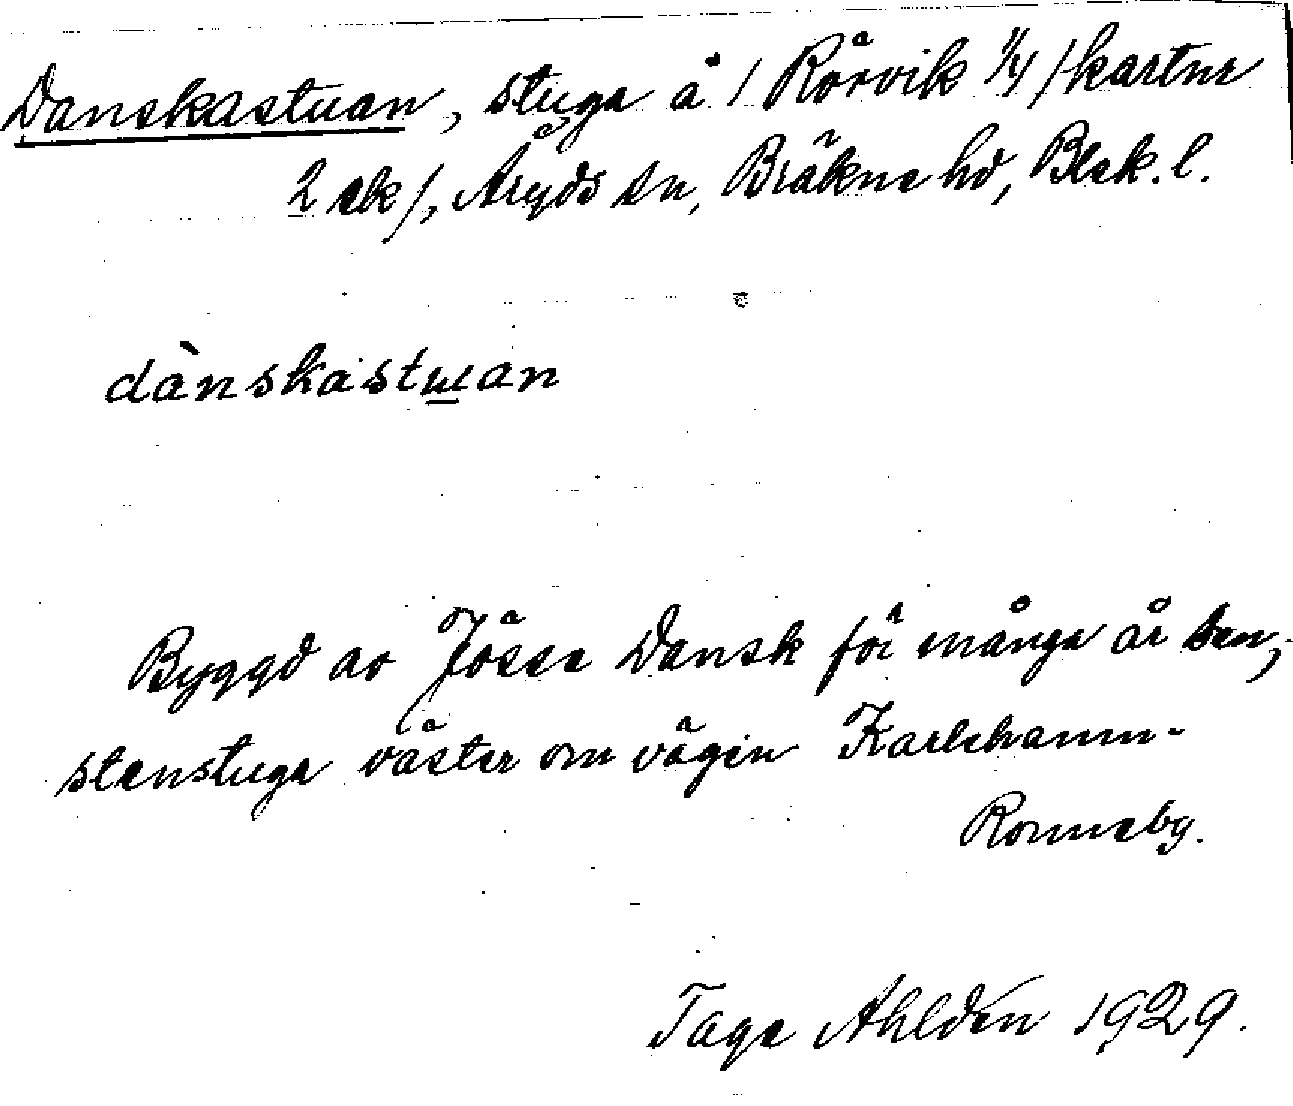 Danskastuan, stuga å 1 Rörvik 1/4 /kartnr
2 ek/, Åryds sn, Bräkne hd, Blek. l.
dànskastuan
Byggd av Jösse Dansk för många år sen;
stenstuga väster om vägen Karlshamn-
Ronneby.
Tage Ahldén 1929.